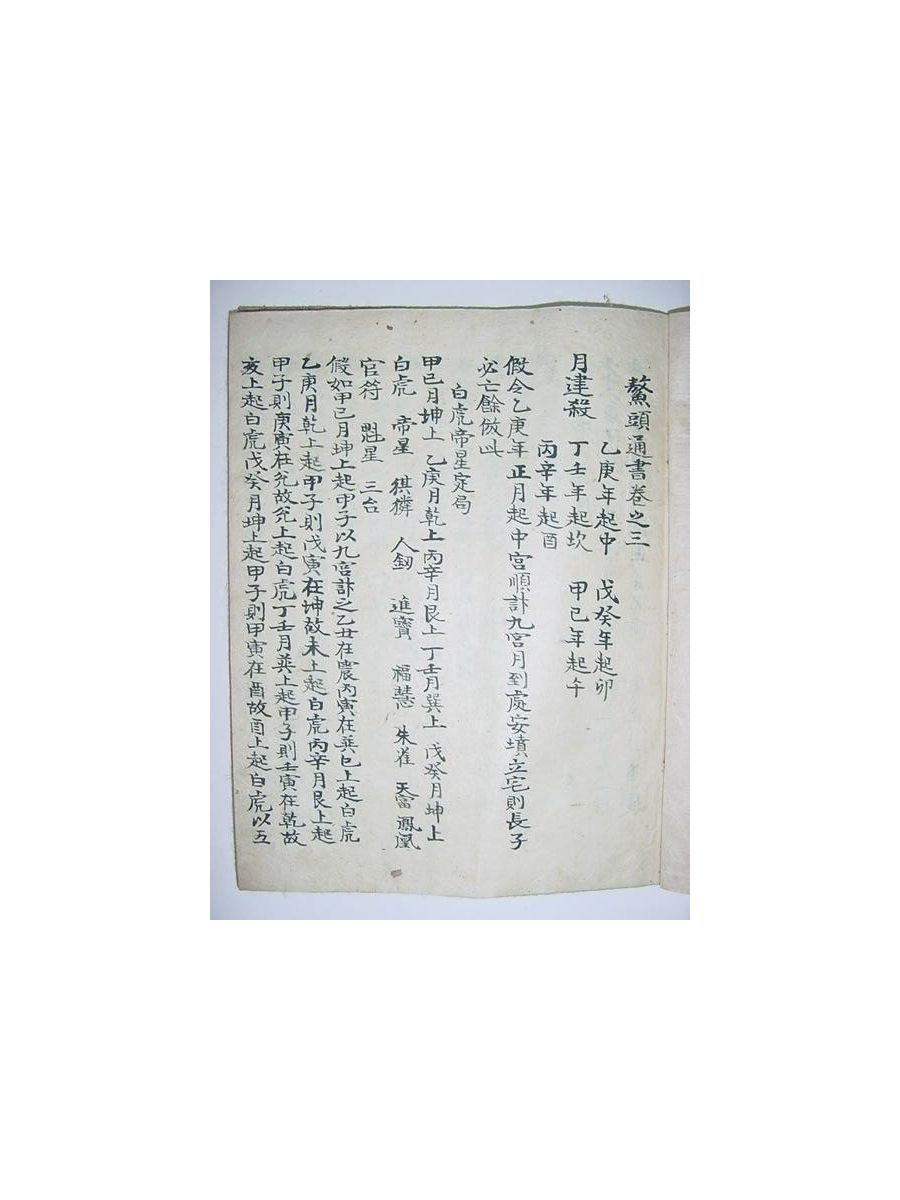 鰲頭通書卷之三
乙庚年起中 戊癸年起卯
月建殺 丁壬年起坎 甲己年起午
丙辛年起酉
假令乙庚年正月起中宮順計九宮月到處安墳立宅則長子
必亡餘倣此
白虎帝星定局
甲己月坤上 乙庚月乾上 丙辛月艮上 丁壬月巽上 戊癸月坤上
白虎 帝星 猉獜 人釰 進寶 福慧 朱雀 天富 鳳凰
官符 魁星 三台
假如甲己月坤上起甲子以九宮計之乙丑在震丙寅在巽巳上起白虎
乙庚月乾上起甲子則戊寅在坤故未上起白虎丙辛月艮上起
甲子則庚寅在兊故兊上起白虎丁壬月巽上起甲子則壬寅在乾故
亥上起白虎戊癸月坤上起甲子則甲寅在酉故酉上起白虎以五